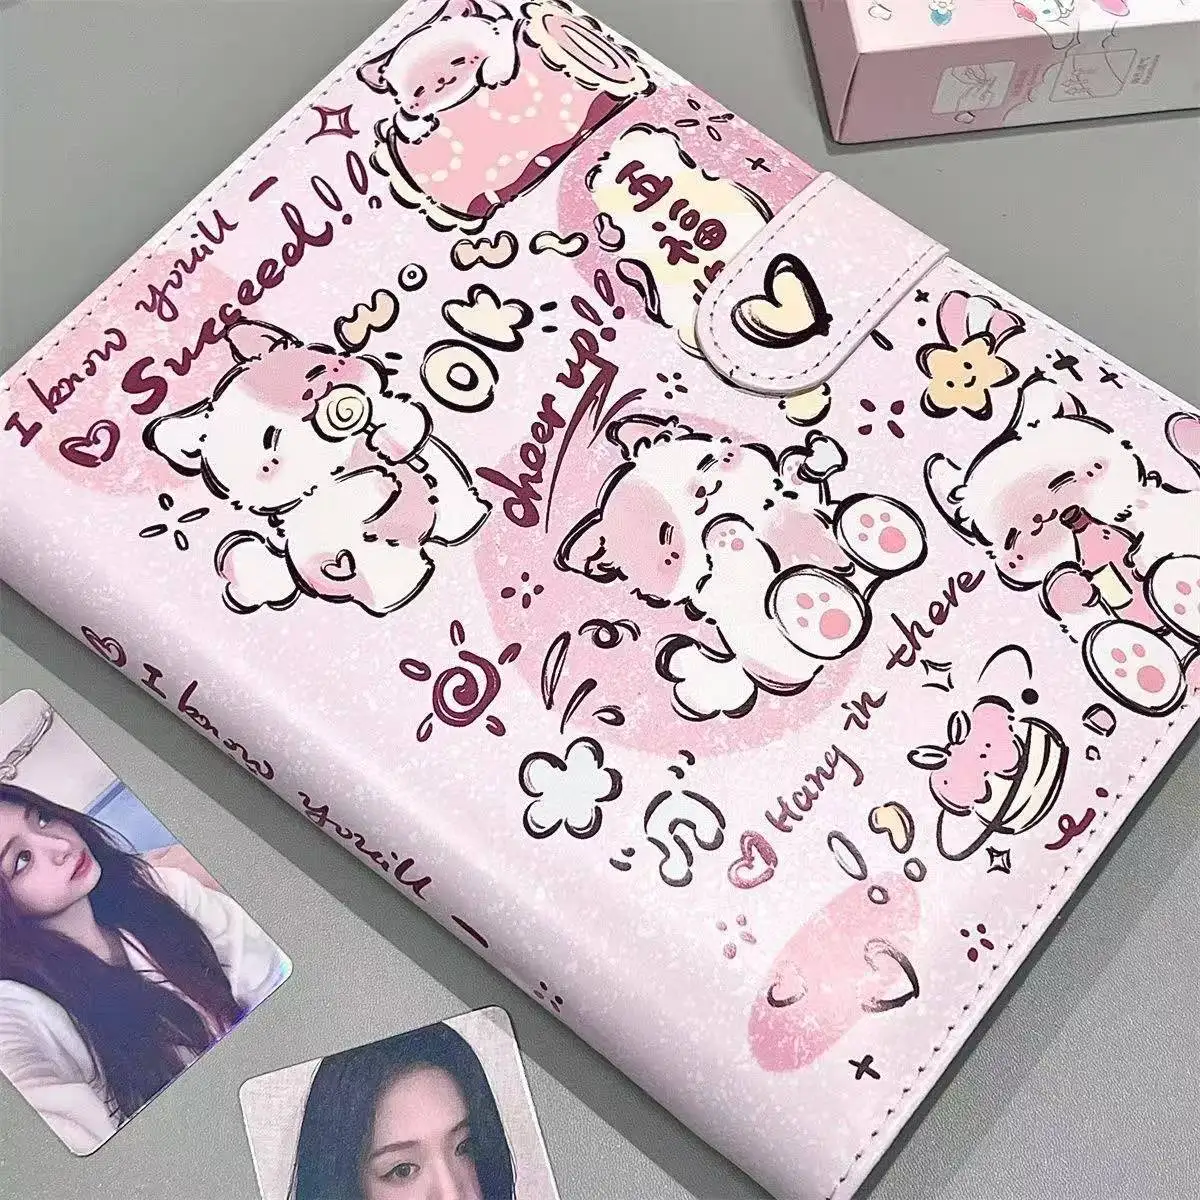 I know youill –
Succeed!!
OK
cheer up!!
五
福
Hang in there
I know youill –